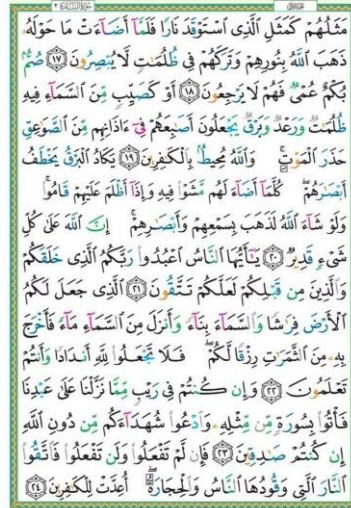 مَثَلُهُمْ كَمَثَلِ ٱلَّذِى ٱسْتَوْقَدَ نَارًا فَلَمَّآ أَضَآءَتْ مَا حَوْلَهُۥ
ذَهَبَ ٱللَّهُ بِنُورِهِمْ وَتَرَكَهُمْ فِى ظُلُمَٰتٍ لَّا يُبْصِرُونَ ١٧ صُمٌّۢ
بُكْمٌ عُمْىٌ فَهُمْ لَا يَرْجِعُونَ ١٨ أَوْ كَصَيِّبٍ مِّنَ ٱلسَّمَآءِ فِيهِ
ظُلُمَٰتٌ وَرَعْدٌ وَبَرْقٌ يَجْعَلُونَ أَصَٰبِعَهُمْ فِىٓ ءَاذَانِهِم مِّنَ ٱلصَّوَٰعِقِ
حَذَرَ ٱلْمَوْتِ ۚ وَٱللَّهُ مُحِيطٌۢ بِٱلْكَٰفِرِينَ ١٩ يَكَادُ ٱلْبَرْقُ يَخْطَفُ
أَبْصَٰرَهُمْ ۖ كُلَّمَآ أَضَآءَ لَهُم مَّشَوْا۟ فِيهِ وَإِذَآ أَظْلَمَ عَلَيْهِمْ قَامُوا۟ ۚ
وَلَوْ شَآءَ ٱللَّهُ لَذَهَبَ بِسَمْعِهِمْ وَأَبْصَٰرِهِمْ ۚ إِنَّ ٱللَّهَ عَلَىٰ كُلِّ
شَىْءٍ قَدِيرٌ ٢٠ يَٰٓأَيُّهَا ٱلنَّاسُ ٱعْبُدُوا۟ رَبَّكُمُ ٱلَّذِى خَلَقَكُمْ
وَٱلَّذِينَ مِن قَبْلِكُمْ لَعَلَّكُمْ تَتَّقُونَ ٢١ ٱلَّذِى جَعَلَ لَكُمُ
ٱلْأَرْضَ فِرَٰشًا وَٱلسَّمَآءَ بِنَآءً وَأَنزَلَ مِنَ ٱلسَّمَآءِ مَآءً فَأَخْرَجَ
بِهِۦ مِنَ ٱلثَّمَرَٰتِ رِزْقًا لَّكُمْ ۖ فَلَا تَجْعَلُوا۟ لِلَّهِ أَندَادًا وَأَنتُمْ
تَعْلَمُونَ ٢٢ وَإِن كُنتُمْ فِى رَيْبٍ مِّمَّا نَزَّلْنَا عَلَىٰ عَبْدِنَا
فَأْتُوا۟ بِسُورَةٍ مِّن مِّثْلِهِۦ وَٱدْعُوا۟ شُهَدَآءَكُم مِّن دُونِ ٱللَّهِ
إِن كُنتُمْ صَٰدِقِينَ ٢٣ فَإِن لَّمْ تَفْعَلُوا۟ وَلَن تَفْعَلُوا۟ فَٱتَّقُوا۟
ٱلنَّارَ ٱلَّتِى وَقُودُهَا ٱلنَّاسُ وَٱلْحِجَارَةُ ۖ أُعِدَّتْ لِلْكَٰفِرِينَ ٢٤